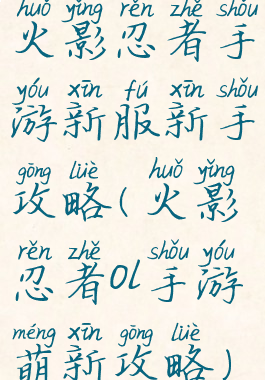 huǒ yǐng rěn zhě shǒu
火影忍者手
yóu xīn fú xīn shǒu
游新服新手
gōng lüè huǒ yǐng
攻略(火影
rěn zhě shǒu yóu
忍者ol手游
méng xīn gōng lüè
萌新攻略)